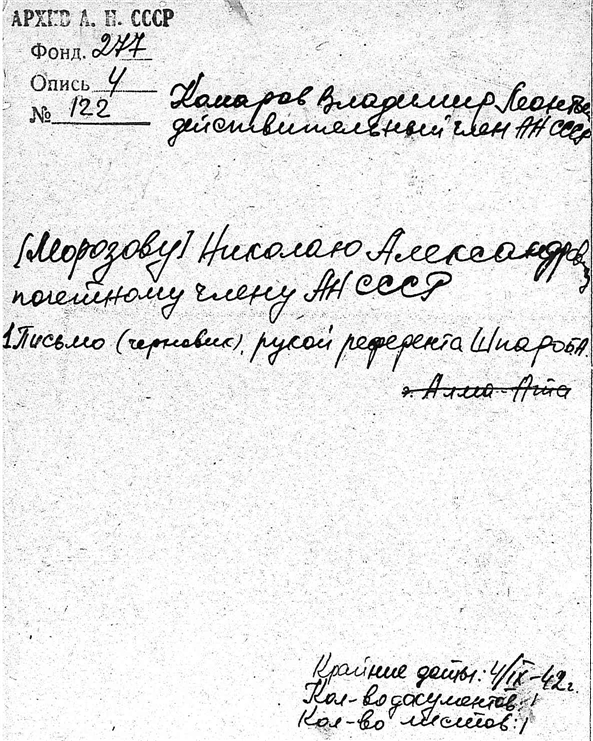 АРХИВ А. Н. СССР
Фонд. 277
Опись 4
№ 122
Комаров Владимир Леонтьев
действительный член АН СССР
[Морозову] Николаю Александрович
почетному члену АН СССР
1 Письмо (черновик), рукой референта Шпаро Б.А.
г. Алма-Ата
Крайние даты: 4/IX-42г.
Кол-во документов: 1
Кол-во листов: 1